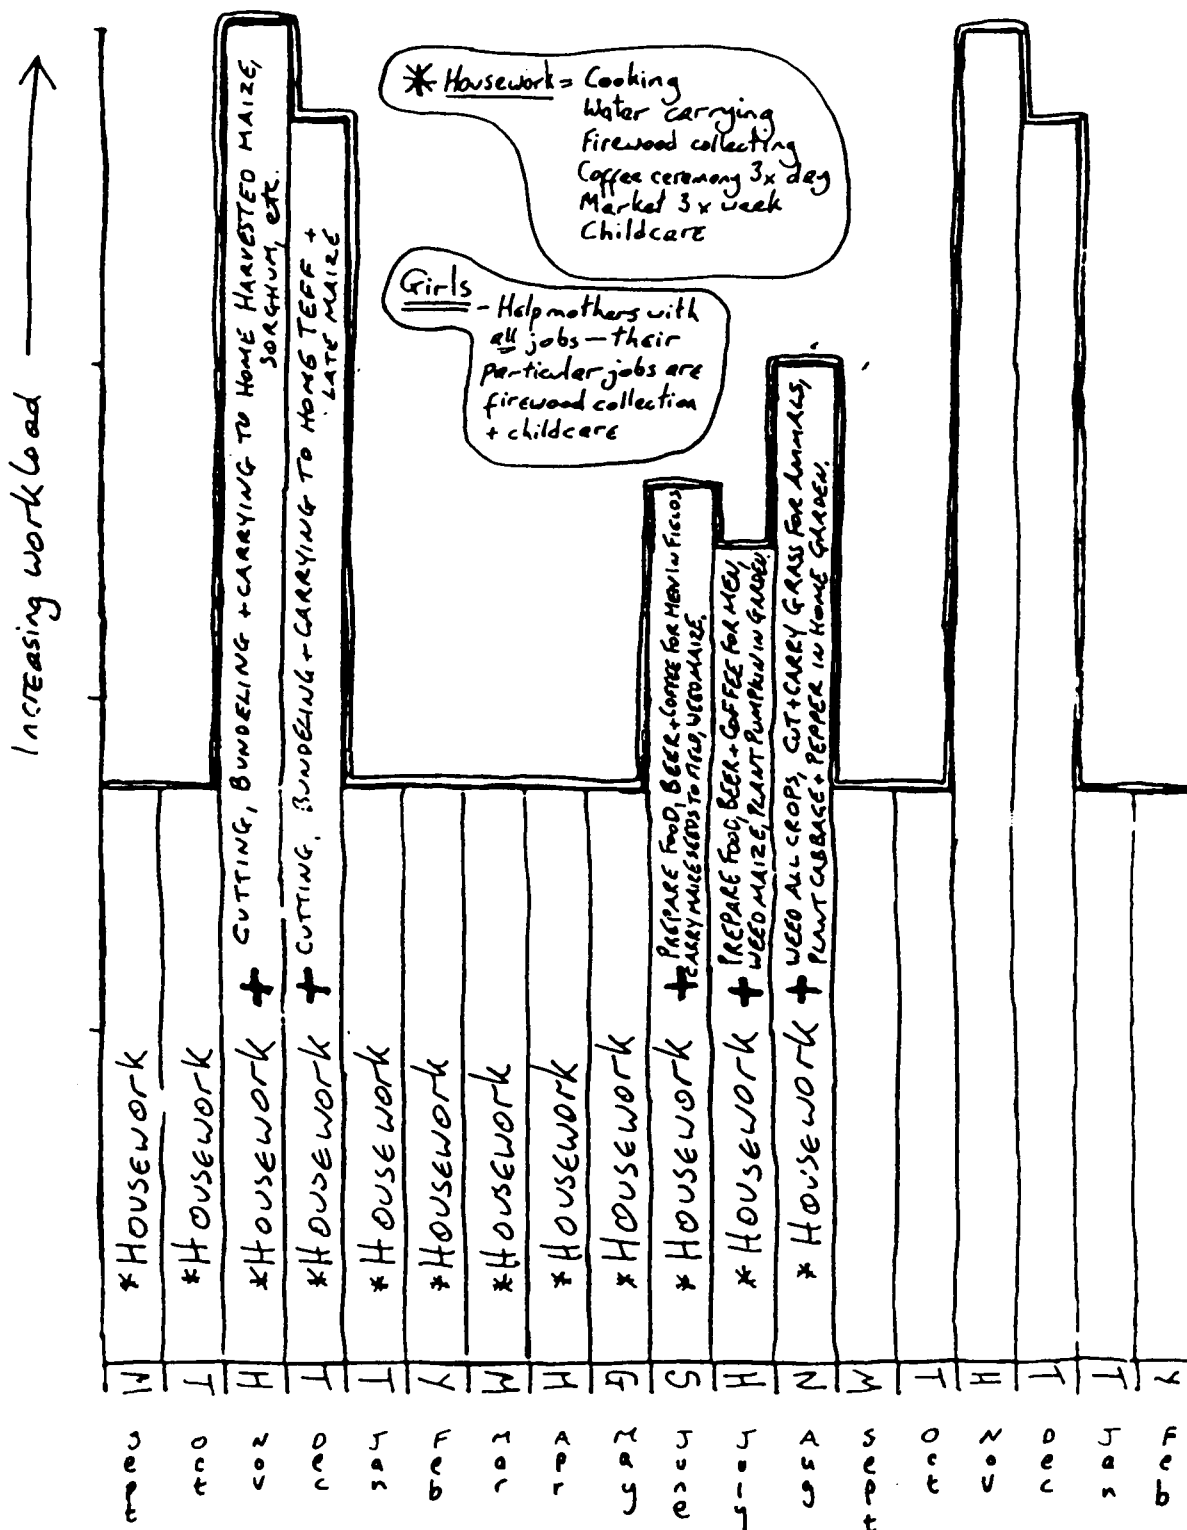 Increasing workload
* Housework = Cooking
Water carrying
Firewood collecting
Coffee ceremony 3x day
Market 3 x week
Childcare
Girls
- Help mothers with
all jobs - their
particular jobs are
firewood collection
+ childcare
*HOUSEWORK
*HOUSEWORK
*HOUSEWORK + CUTTING, BUNDELING + CARRYING TO HOME HARVESTED MAIZE,
SORGHUM, etc.
*HOUSEWORK + CUTTING, BUNDELING + CARRYING TO HOME TEFF +
LATE MAIZE
*HOUSEWORK
*HOUSEWORK
*HOUSEWORK
*HOUSEWORK
*HOUSEWORK
*HOUSEWORK + PREPARE FOOD, BEER + COFFEE FOR MEN IN FIELDS
CARRY MAIZE SEEDS TO FIELD, WEED MAIZE.
*HOUSEWORK + PREPARE FOOD, BEER + COFFEE FOR MEN,
WEED MAIZE, PLANT PUMPKIN IN GARDEN.
*HOUSEWORK + WEED ALL CROPS, CUT + CARRY GRASS FOR ANIMALS,
PLANT CABBAGE + PEPPER IN HOME GARDEN.
M T H T T Y M M G S H N M T H T T Y
Sept Oct Nov Dec Jan Feb Mar Apr May June July Aug Sept Oct Nov Dec Jan Feb